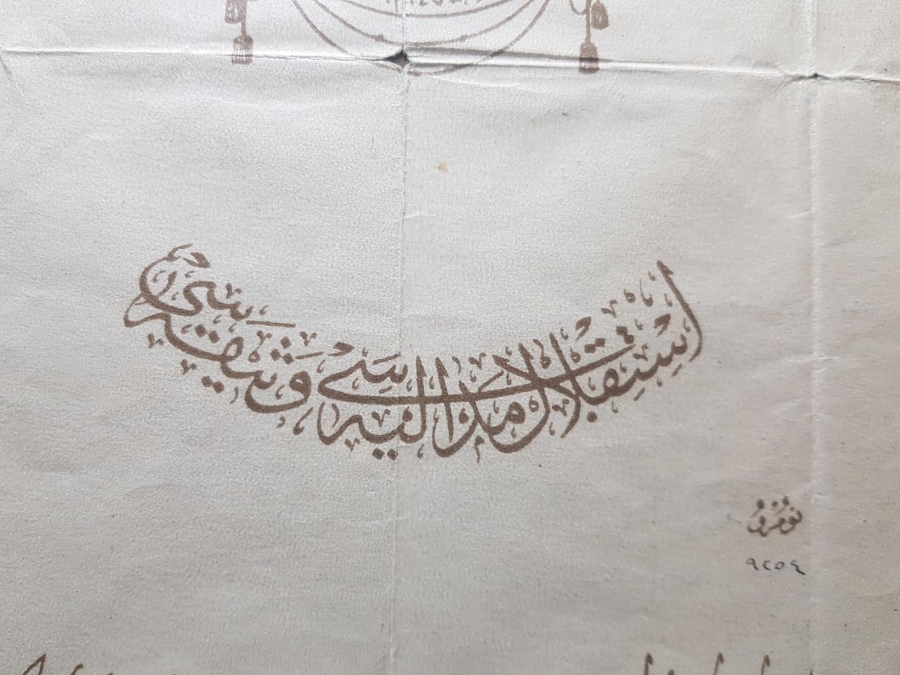 استقلال مداليه سى وثيقه سى
نومرو
٩٢٥٤